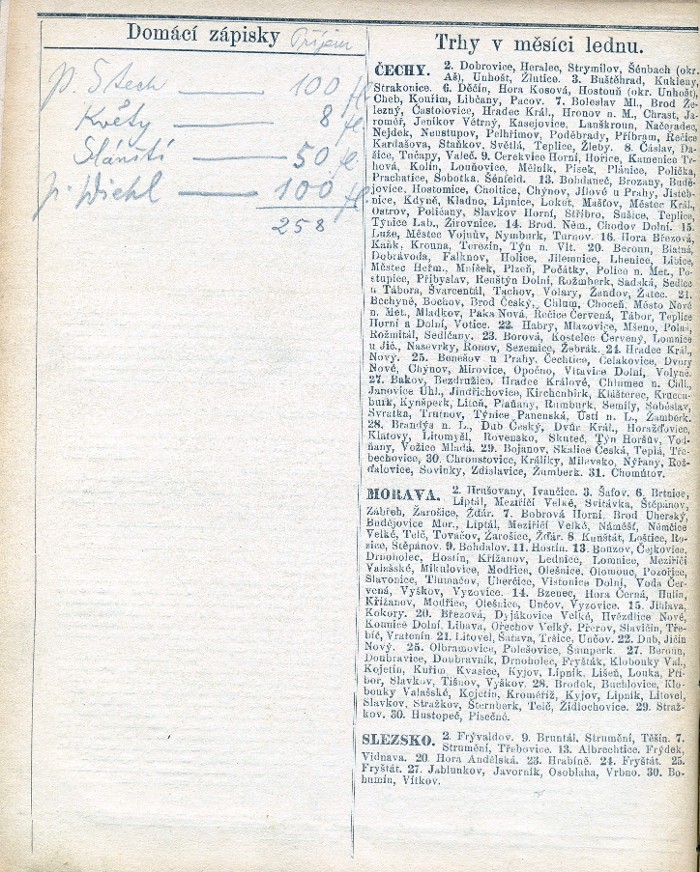 Domácí zápisky Příjem
p. Stech 100 fl
Květy 8 fl.
50 fl.
p. Wiehl 100 fl
258
Trhy v měsíci lednu.
ČECHY. 2. Dobrovice, Heralec, Strymilov, Šénbach (okr.
Aš), Unhošt, Žlutice. 3. Buštěhrad, Kukleny,
Strakonice. 6. Děčín, Hora Kosová, Hostouň (okr. Unhošť),
Cheb, Kouřim, Libčany, Pacov. 7. Boleslav Ml., Brod Že-
lezný, Častolovice, Hradec Král., Hronov n. M., Chrast, Ja-
roměř, Jeníkov Větrný, Kasejovice, Lanškroun, Načeradec,
Nejdek, Neustupov, Pelhřimov, Poděbrady, Příbram, Řečice
Kardašova, Staňkov, Světlá, Teplice, Žleby. 8. Čáslav, Da-
šice, Tučapy, Valeč. 9. Cerekvice Horní, Hořice, Kamenice Tr-
hová, Kolín, Lounňovice, Mělník, Písek, Plánice, Polička,
Prachatice, Sobotka, Šénfeld. 13. Bohdaneč, Brozany, Budě-
jovice, Hostomice, Choltice, Chýnov, Jílové u Prahy, Jisteb-
nice, Kdyně, Kladno, Lipnice, Loket, Mašťov, Městec Král.,
Ostrov, Poličany, Slavkov Horní, Stříbro, Sušice, Teplice,
Týnice Lab., Žirovnice. 14. Brod. Něm., Chodov Dolní. 15.
Luže, Městec Vojnův, Nymburk, Turnov. 16. Hora Březová,
Kaňk, Krouna, Terezín, Týn n. Vlt. 20. Beroun, Blatná,
Dobrávoda, Falknov, Holice, Jilemnice, Lhenice, Libice,
Městec Heřm., Mníšek, Plzeň, Počátky, Police n. Met., Po-
stupice, Přibyslav, Renštýn Dolní, Rožmberk, Sadská, Sedlec
u Tábora, Švarcentál, Tachov, Volary, Žandov, Žatec. 21.
Bechyně, Bochov, Brod Český, Chlum, Choceň, Město Nové
n. Met., Mladkov, Paka Nová, Rečice Červená, Tábor, Teplice
Horní a Dolní, Votice. 22. Habry, Mlazovice, Mšeno, Polná,
Rožmitál, Sedlčany. 23. Borová, Kostelec Červený, Lomnice
u Jič., Nasevrky, Ronov, Sezemice, Žebrák. 24. Hradec Král.
Nový. 25. Benešov u Prahy, Čechtice, Čelakovice, Dvory
Nové, Chýnov, Mirovice, Opočno, Vltavice Dolní, Volyně.
27. Bakov, Bezdružice, Hradec Králové, Chlumec n. Cidl.,
Janovice Uhl., Jindřichovice, Kirchenbirk, Klášterec, Krucem-
burk, Kynšperk, Liteň, Plaňany, Rumburk, Semily, Soběslav,
Svratka, Trutnov, Týnice Panenská, Ústí n. L., Žamberk.
28. Brandýs n. L., Dub Český, Dvůr Král., Horažďovice,
Klatovy, Litomyšl, Rovensko, Skuteč, Týn Horšův, Vod-
ňany, Vožice Mladá. 29. Bojanov, Skalice Česká, Teplá, Tře-
bechovice, 30. Chroustovice, Králíky, Milevsko, Nýřany, Rož-
ďalovice, Sovinky, Zdislavice, Žumberk. 31. Chomútov.
MORAVA. 2. Hrušovany, Ivančice. 3. Šafov. 6. Brtnice,
Liptál, Meziříčí Velké, Svitávka, Štěpánov,
Zábřeh, Žarošice, Žďár. 7. Bobrová Horní, Brod Uherský,
Budějovice Mor., Liptál, Meziříčí Velké, Náměšť, Němčice
Velké, Telč, Tovačov, Žarošice, Žďár. 8 Kunštát, Loštice, Ro-
sice, Štěpánov. 9. Bohdalov. 11. Hostín. 13. Bouzov, Čejkovice,
Drnoholec, Hostín, Křižanov, Lednice, Lomnice, Meziříčí
Valašské, Mikulovice, Modřici, Olešnice, Olomouc, Pozořice,
Slavonice, Tlumačov, Uherčice, Vistonice Dolní, Voda Čer-
vená, Vyškov, Vyzovice. 14. Bzenec, Hora Černá, Hulín,
Křižanov, Modřice, Olešnice, Unčov, Vyzovice. 15. Jihlava,
Kokory. 20. Březová, Dyjákovice Velké, Hvězdlice Nové,
Kounice Dolní, Libava, Ořechov Velký, Přerov, Slavičín, Tře-
bíč, Vratenín. 21. Litovel, Šatava, Tršice, Unčov. 22. Dub, Jičín
Nový. 25. Olbramovice, Polešovice, Šumperk. 27. Beroun,
Doubravice, Doubravník, Drnoholec, Fryšták, Klobouky Val.,
Kojetín, Kuřim, Kvasice, Kyjov, Lipník, Lišeň, Louka, Pří-
bor, Slavkov, Tišnov, Vyškov. 28. Brodek, Buchlovice, Klo-
bouky Valašské, Kojetín, Kroměříž, Kyjov, Lipník, Litovel,
Slavkov, Stražkov, Šternberk, Telč, Židlochovice. 29. Straž-
kov. 30. Hustopeč, Písečné.
SLEZSKO. 2. Frývaldov. 9. Bruntál, Strumění, Těšín. 7.
Strumění, Třebovice. 13. Albrechtice, Frýdek,
Vidnava. 20. Hora Andělská. 23. Hrabině. 24. Fryštát. 25.
Fryštát. 27. Jablunkov, Javorník, Osoblaha, Vrbno. 30. Bo-
humín, Vítkov.